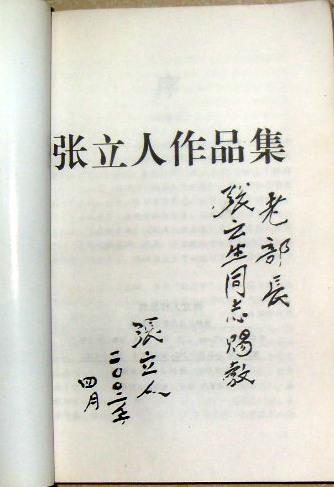 张立人作品集
老部長
張云生同志賜教
張立人
二〇〇二年
四月